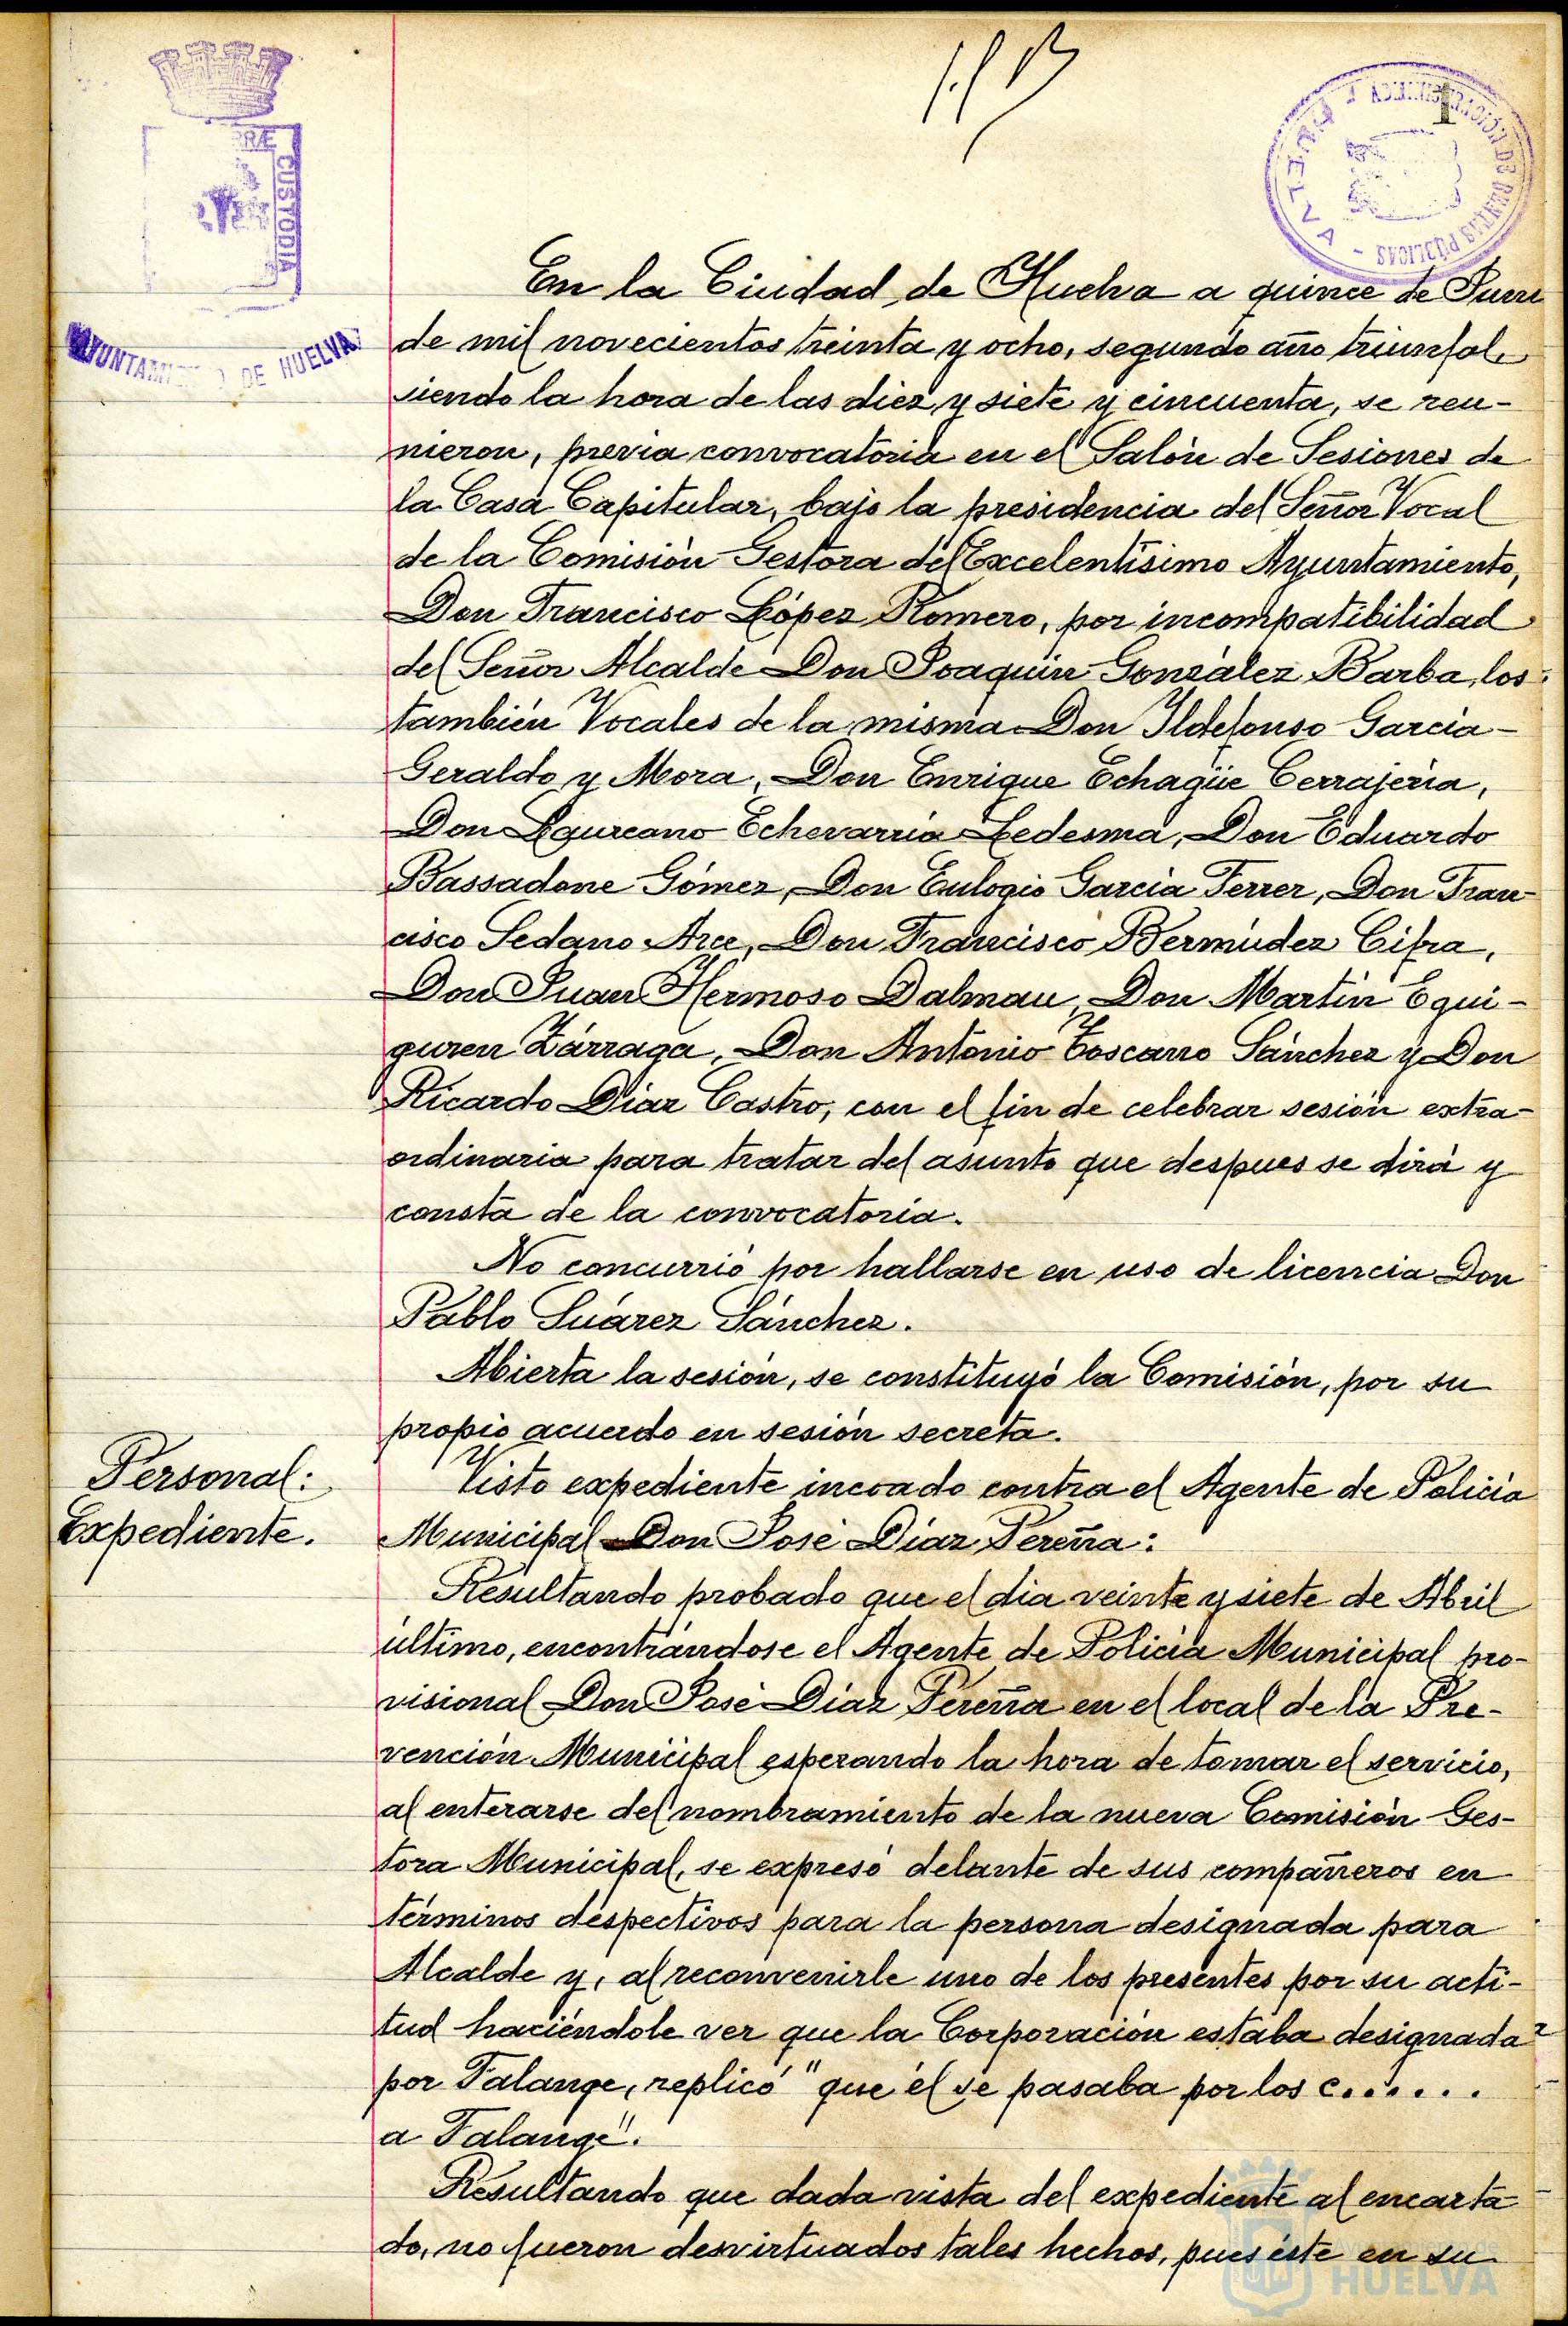 1
PORTUS MARIS ET TERRÆ CUSTODIA
AYUNTAMIENTO DE HUELVA
HUELVA
En la Ciudad de Huelva a quince de Junio
de mil novecientos treinta y ocho, segundo año triunfal,
siendo la hora de las diez y siete y cincuenta, se reu-
nieron, previa convocatoria en el Salón de Sesiones de
la Casa Capitular, bajo la presidencia del Señor Vocal
de la Comisión Gestora del Excelentísimo Ayuntamiento,
Don Francisco López Romero, por incompatibilidad
del Señor Alcalde Don Joaquín González Barba, los
también Vocales de la misma Don Ildefonso García-
Geraldo y Mora, Don Enrique Echagüe Cerrajería,
Don Laureano Echevarría Ledesma, Don Eduardo
Bassadone Gómez, Don Eulogio García Ferrer, Don Fran-
cisco Sedano Arce, Don Francisco Bermúdez Cifra,
Don Juan Hermoso Dalmau, Don Martín Egui-
guren Zárraga, Don Antonio Toscano Sánchez y Don
Ricardo Díaz Castro, con el fin de celebrar sesión extra-
ordinaria para tratar del asunto que despues se dirá y
consta de la convocatoria.
No concurrió por hallarse en uso de licencia Don
Pablo Suárez Sánchez.
Abierta la sesión, se constituyó la Comisión, por su
propio acuerdo en sesión secreta.
Personal:
Expediente.
Visto expediente incoado contra el Agente de Policía
Municipal Don José Díaz Pereña:
Resultando probado que el dia veinte y siete de Abril
último, encontrándose el Agente de Policía Municipal pro-
visional Don José Díaz Pereña en el local de la Pre-
vención Municipal esperando la hora de tomar el servicio,
al enterarse del nombramiento de la nueva Comisión Ges-
tora Municipal, se expresó delante de sus compañeros en
términos despectivos para la persona designada para
Alcalde y, al reconvenirle uno de los presentes por su acti-
tud haciéndole ver que la Corporación estaba designada
por Falange, replicó "que él se pasaba por los c......
a Falange".
Resultando que dada vista del expediente al encarta
do, no fueron desvirtuados tales hechos, pues éste en su
HUELVA